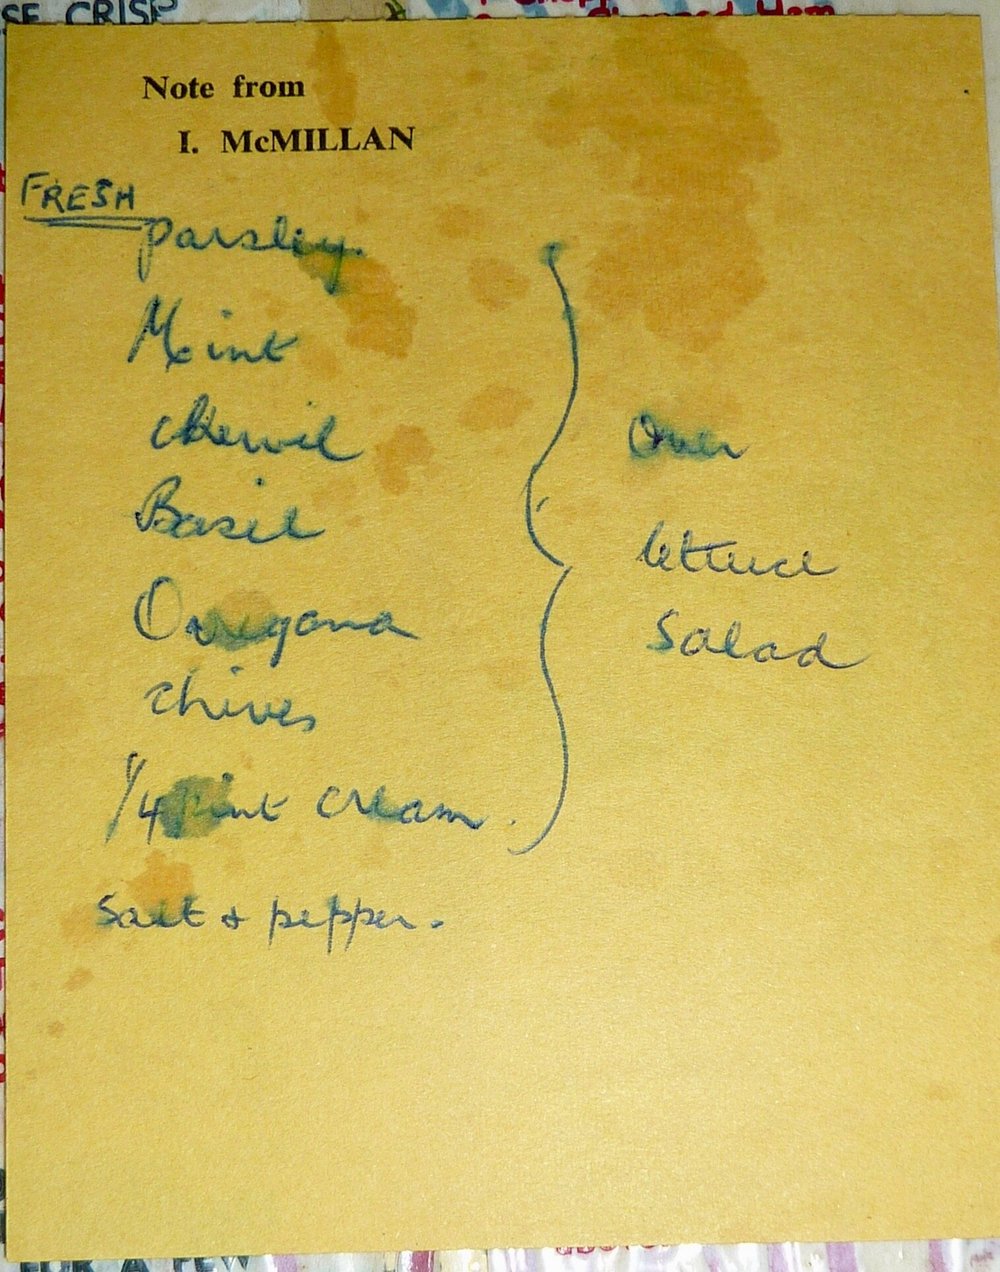 SE CRISP
Note from
I. McMILLAN
FRESH
parsley.
Mint
chervil
Basil
Oregano
chives
1/4 pint cream.
salt & pepper.
Over
lettuce
Salad
FOR A FEW